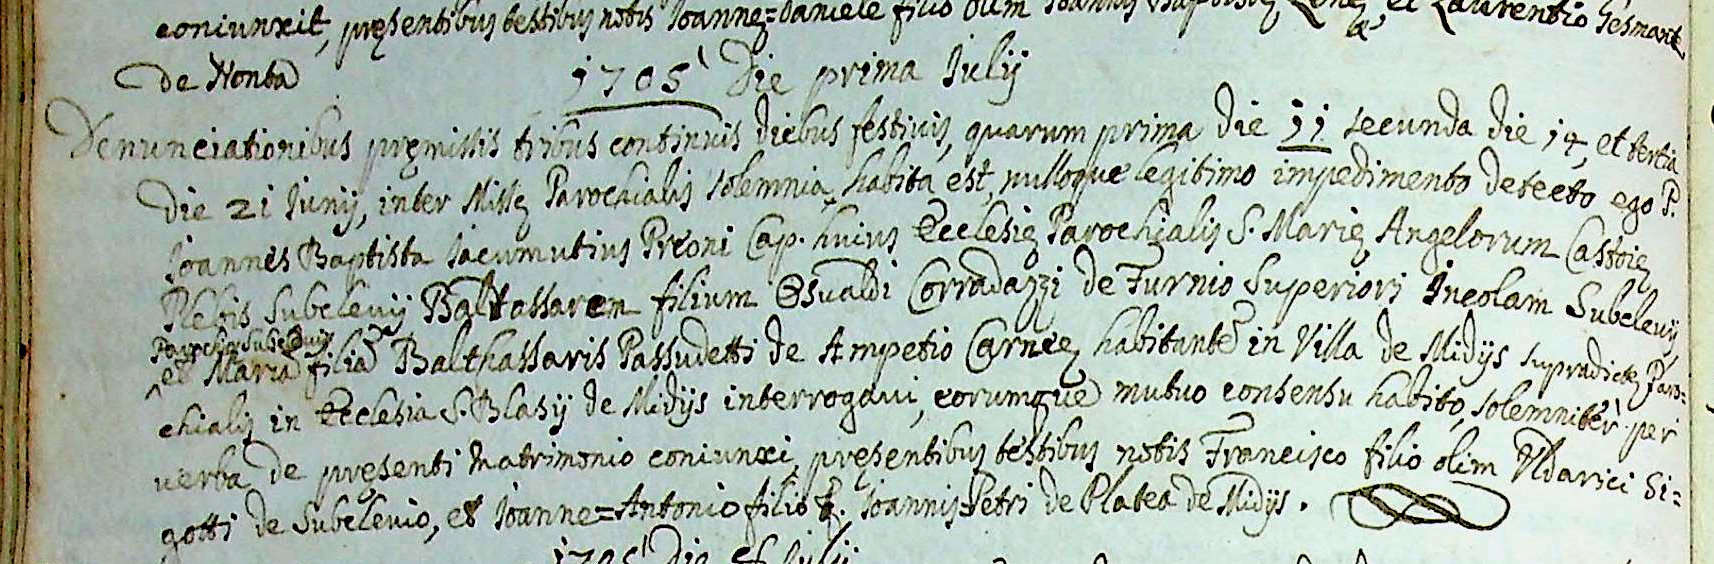 coniunxit, pręsentibus testibus notis Joanne=Daniele filio olim Joannis Baptistę et Laurentio
de Nonta
1705 Die prima Julij
Denunciationibus pręmissis tribus continuis diebus festivis, quarum prima die 11 secunda die 14, et tertia
die 21 Junij, inter Missę Parochialis solemnia habita est, nulloque legitimo impedimento detecto ego P.
Joannes Baptista Jacumutius Preoni Cap. huius Ecclesię Parochialis S. Marię Angelorum Castoię
Plebis Subclevij Baltassarem filium Osvaldi Corradazzi de Furnio Superiori Incolam Subclevij,
Parochię Subclevij
et Maria filia Balthassaris Passudetti de Ampetio Carnię habitante in Villa de Midijs supradictę Paro=
chialis in Ecclesia S. Blasij de Midijs interrogavi, eorumque mutuo consensu habito, solemniter per
verba de pręsenti Matrimonio coniunxi, pręsentibus testibus notis Francisco filio olim Vldarici Si=
gotti de Subclevio, et Joanne=Antonio filio q. Joannis=Petri de Platea de Midijs.
1705 Die Julij